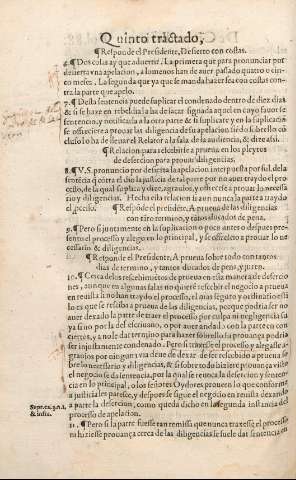 Quinto tractado,
¶ Respōde el Presidente, Desierto con costas.
6. ¶ Dos cosas ay que aduertir. La primera que para pronunciar por
desierta vna apelacion, a lo menos han de auer passado quatro o cin-
co meses. La segunda que ya que se manda hazer sea con costas con-
tra la parte que apelo.
7. ¶ Desta sentencia puede suplicar el condenado dentro de diez dias
& si se haze en rebeldia ha de sacar
sentencia, y notificarla a la otra parte & si suplicare y en la suplicaciō
se offreciere a prouar las diligencias de su apelacion
cluso lo ha de lleuar el Relator a la sala de la audiencia, & dize assi.
¶ Relacion para recebirse a prueua en los pleytos
de desercion para prouar diligencias.
8. ¶ V. S. pronuncio por desierta la apelacion interpuesta por fulano de la
sentēcia q̄ contra el dio la justicia de tal parte por no auer traydo el pro-
cesso, de la qual suplica y dize, agrauios, y offrecese a prouar lo necessa
rio y diligencias. Hecha esta relacion si aun nunca la parte a traydo
el processo. ¶ Respōde el presidēte. A prueua de las diligencias
con tiro termino, y tātos ducados de pena.
9. ¶ Pero si juntamente en la suplicacion o poco antes o despues pre-
sento el processo y alego en lo principal, y se offreciero a prouar lo ne
cessario & diligencias.
¶ Responde el Presidente, A prueua sobre todo con tantos
dias de termino, y tantos ducados de pena, y juren.
10. ¶ Cerca de los rescebimientos de prueua en esta manera de desercio
nes, aunque en algunas salas no quierē rescebir el negocio a prueua
en reuista si no han traydo el processo, el mas seguro y ordinario esti-
lo es que se resciba a prueua de las diligencias, porque podria ser no
auer dexado la parte de traer el processo por culpa ni negligencia su
ya si no por la del escriuano, o por auer andado con la parte en con-
ciertos, y a no le dar termino para hazer sobre ello su prouança podria
ser injustamente condenado. Pero si truxesse el processo y alegasse a-
grauios por ninguna via deue de dexar de ser rescebido a prueua so
bre lo necessario y diligencias, & si sobre todo hiziere prouança visto
el negocio se da sentencia, en la qual se reuoca la desercion, y senten-
cia en lo principal, o los señores Oydores prouean lo que conforme
a justicia les paresce, y despues se sigue el negocio en reuista dexando
a parte la desercion, como queda dicho en la segunda instancia del
processo de apelacion.
Supr. ca. 9. n. 1.
& infra.
11. ¶ Pero si la parte fuesse tan remissa que nunca traxesse el processo
ni hiziesse prouança cerca de las diligencias se suele dar sentencia en